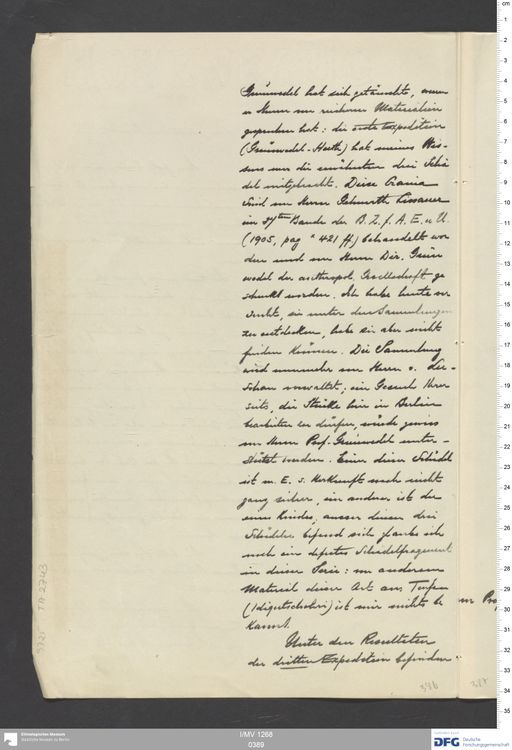 Grünwedel hat sich getäuscht, wenn
er Ihnen von reichem Material
gesprochen hat: die erste Expedition
(Grünwedel-Huth) hat meines Wis-
sens nur die erwähnten drei Schä
del mitgebracht. Diese Crania
sind von Herrn Geheimrth. Lissauer
im 37ten Bande der B. Z. f. A. E. u U.
(1905, pag 421 ff) behandelt wor
den und von Herrn Dir. Grün
wedel der anthropol. Gesellschaft ge
schenkt worden. Ich habe heute ver
sucht, sie unter den Sammlungen
zu entdecken, habe sie aber nicht
finden können. Die Sammlung
wird nunmehr von Herrn v. Lu-
schan verwaltet; ein Gesuch Ihrer
seits, die Stücke hier in Berlin
bearbeiten zu dürfen, würde gewiss
von Herrn Prof. Grünwedel unter-
stützt werden. Einer dieser Schädel
ist m. E. s. Herkunft nach nicht
ganz sicher, ein anderer ist der
eines Kindes, ausser diesen drei
Schädeln befand sich glaube ich
noch ein defektes Schädelfragment
in dieser Serie: von anderem
Material dieser Art aus Turfan
(Idiqutschahri) ist mir nichts be
kannt.
Unter den Resultaten
der dritten Expedition befinden
386
387
TA 2743
I/MV 1268
0389
Ethnologisches Museum
Staatliche Museen zu Berlin
DFG Deutsche
Forschungsgemeinschaft